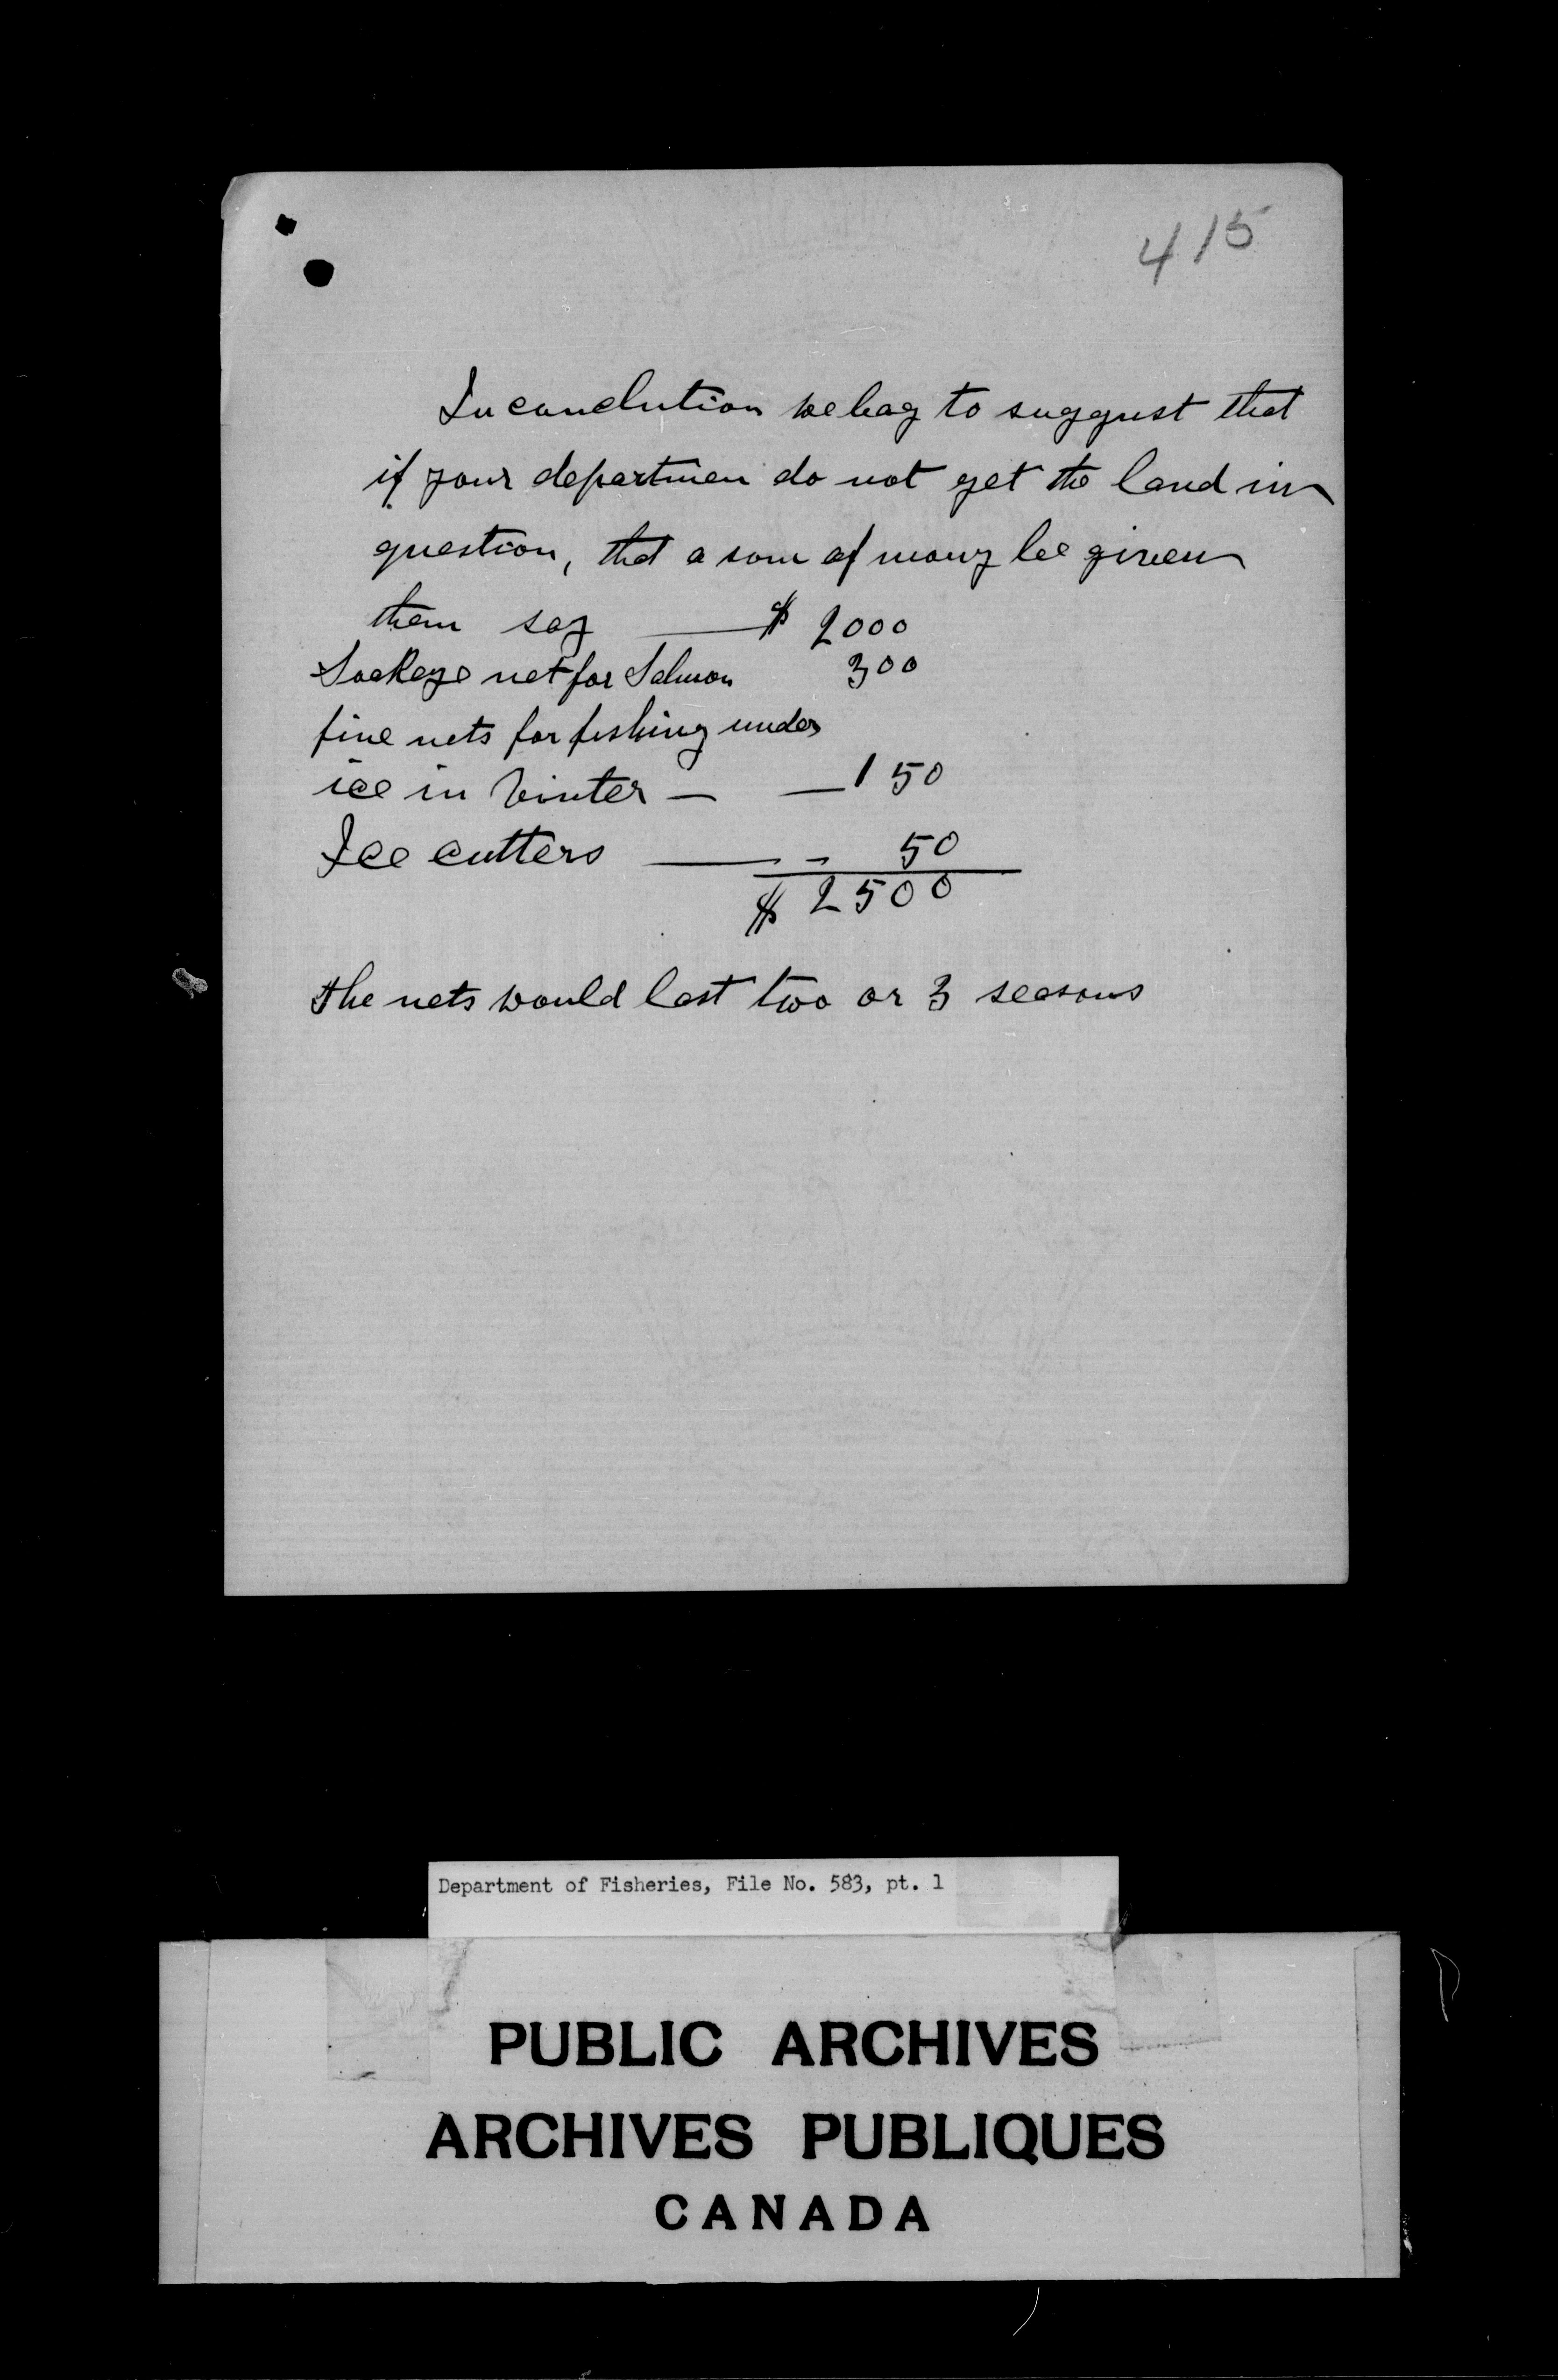 415
In conclution we bag to suggust that
if your departmen do not get the land in
question, that a som of mony be given
them say —— $ 2000
Sockeye net for Salmon 300
fine nets for fishing under
ice in Winter — — 150
Ice cutters —— - 50
$ 2500
The nets would last two or 3 seasons
Department of Fisheries, File No. 583, pt. 1
PUBLIC ARCHIVES
ARCHIVES PUBLIQUES
CANADA